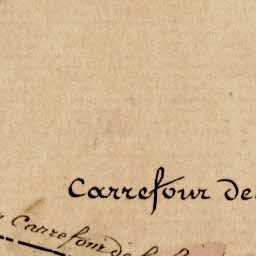 Carrefour de
Carrefour de la